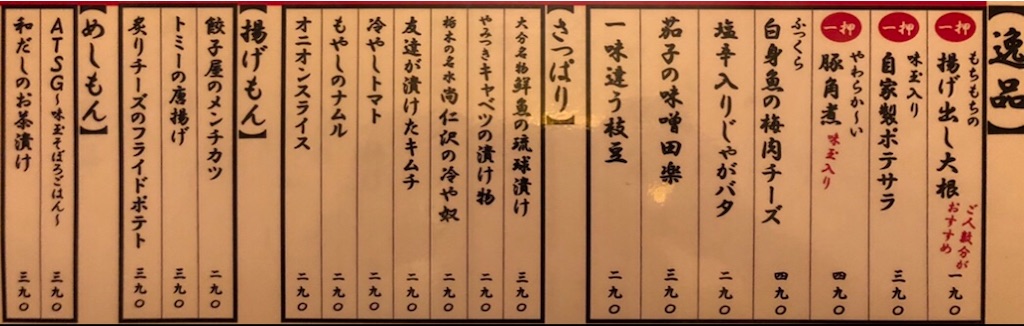 【逸品】
一押
もちもちの
揚げ出し大根
ご人数分が
おすすめ
一九〇
一押
味玉入り
自家製ポテサラ
三九〇
一押
やわらか~い
豚角煮
味玉入り
四九〇
ふっくら
白身魚の梅肉チーズ
四九〇
塩辛入りじゃがバタ
二九〇
茄子の味噌田楽
三九〇
一味違う枝豆
二九〇
【さっぱり】
大分名物鮮魚の琉球漬け
三九〇
やみつきキャベツの漬け物
二九〇
栃木の名水尚仁沢の冷や奴
二九〇
友達が漬けたキムチ
二九〇
冷やしトマト
二九〇
もやしのナムル
二九〇
オニオンスライス
二九〇
【揚げもん】
餃子屋のメンチカツ
二九〇
トミーの唐揚げ
三九〇
炙りチーズのフライドポテト
三九〇
【めしもん】
ATSG~味玉そぼろごはん~
三九〇
和だしのお茶漬け
三九〇